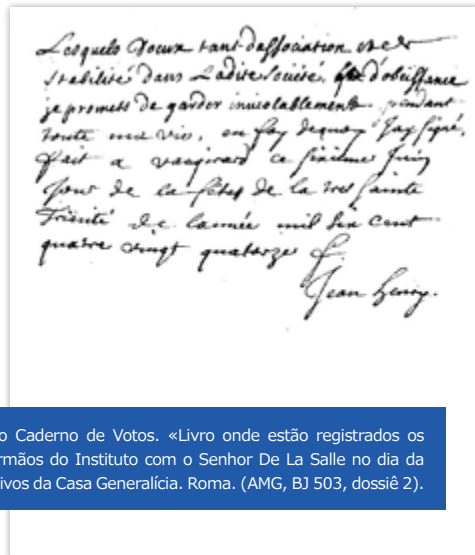 Lesquels Voeux tant dassociation que de
stabilité dans Ladite Société, d'obeissance
je promets de garder inviolablement pendant
toute ma vie, en foy dequoy Jay signé,
fait a vaugirard ce sixieme Juin
Jour de la feste de la tres sainte
Trinité de lannée mil six cent
quatre vingt quatorze
Jean henry.
o Caderno de Votos. «Livro onde estão registrados os
rmãos do Instituto com o Senhor De La Salle no dia da
ivos da Casa Generalícia. Roma. (AMG, BJ 503, dossiê 2).